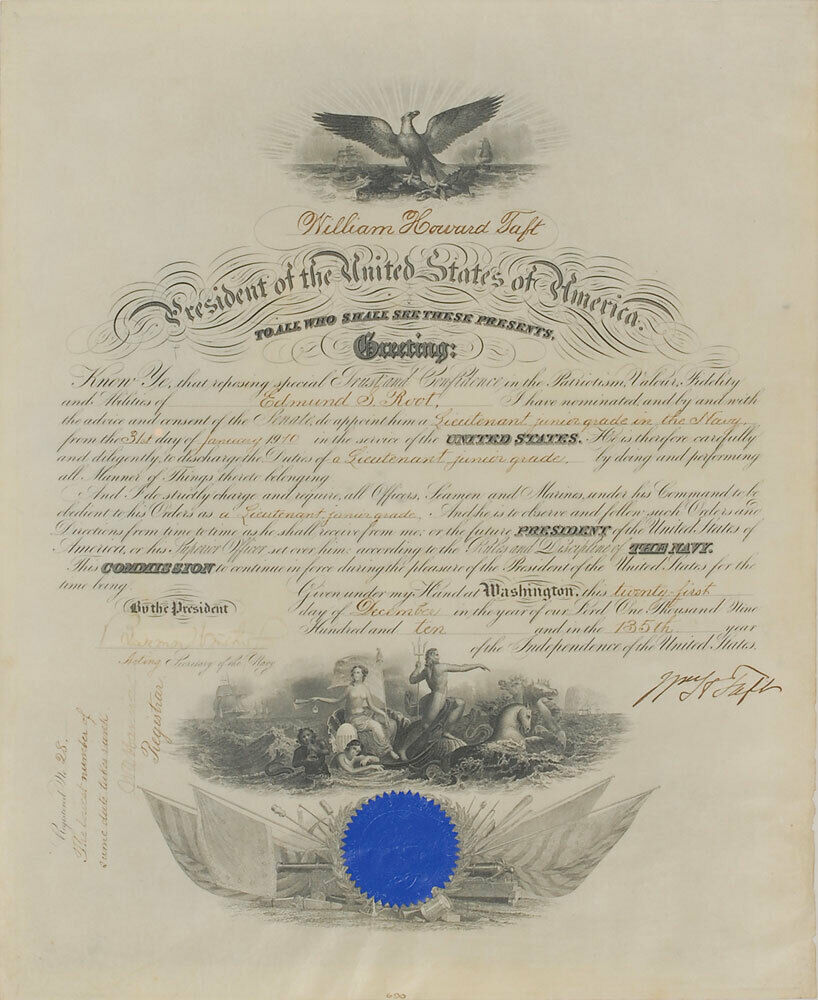 William Howard Taft
President of the United States of America.
TO ALL WHO SHALL SEE THESE PRESENTS,
Greeting:
Know Ye, that reposing special Trust and Confidence in the Patriotism, Valour, Fidelity
and Abilities of Edmund S. Root I have nominated, and by and with
the advice and consent of the Senate, do appoint him a Lieutenant, junior grade in the Navy
from the 31st day of January 1910 in the service of the UNITED STATES. He is therefore carefully
and diligently, to discharge the Duties of a Lieutenant, junior grade, by doing and performing
all Manner of Things thereto belonging
And I do strictly charge and require, all Officers, Seamen and Marines, under his Command to be
obedient to his Orders as a Lieutenant, junior grade. And he is to observe and follow such Orders and
Directions from time to time as he shall receive from me, or the future PRESIDENT of the United States of
America, or his Superior Officer set over him, according to the Rules and Discipline of THE NAVY.
This COMMISSION to continue in force during the pleasure of the President of the United States for the
time being.
Given under my Hand at Washington, this twenty-first
By the President
day of December in the year of our Lord One Thousand Nine
Hundred and ten and in the 135th year
of the Independence of the United States.
Acting Secretary of the Navy
Wm H Taft
Registrar
No. 28.
The lowest number of
same date takes rank
690